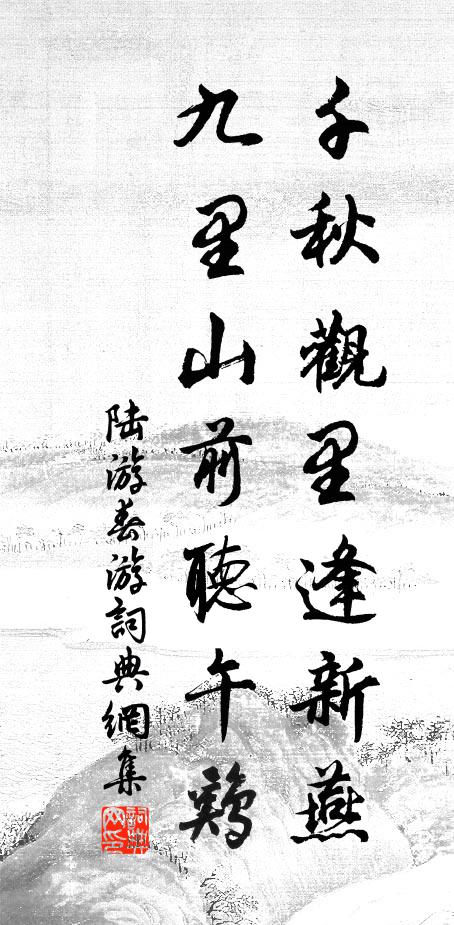 千秋觀里逢新燕
九里山前聽午鷄
陆游春游詞典網集